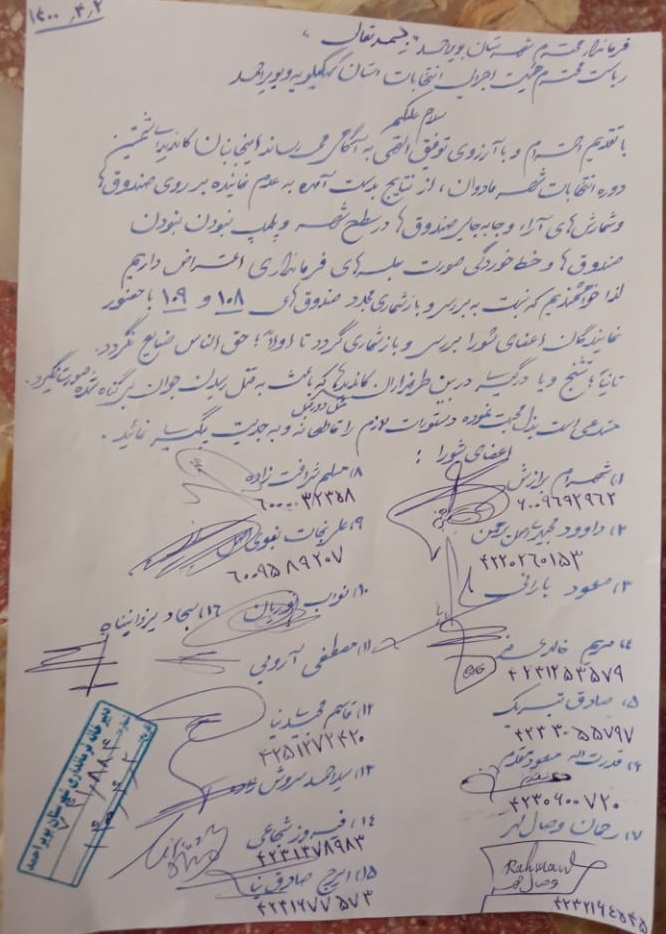 ۱۴۰۰/۴/۲
بسمه تعالی
فرماندار محترم شهرستان بویراحمد
ریاست محترم هیئت اجرایی انتخابات استان کهگیلویه و بویراحمد
سلام علیکم
با تقدیم احترام و با آرزوی توفیق الهی به آگاهی می رساند اینجانبان کاندیدای ششمین
دوره انتخابات شهر مادوان، از نتایج بدست آمده به عدم نماینده بر روی صندوق ها
و شمارش های آراء و جابه جایی صندوق ها در سطح شهر و پلمپ نبودن
صندوق ها و خط خوردگی صورت جلسه های فرمانداری اعتراض داریم
لذا خواهشمندیم که نسبت به بررسی و بازشماری مجدد صندوق های ۱۰۸ و ۱۰۹ با حضور
نمایندگان اعضای شورا بررسی و بازشماری گردد تا اولاً؛ حق الناس ضایع نگردد.
ثانیاً؛ تشنج و یا درگیری در بین طرفداران کاندیدها که باعث به قتل رسیدن جوان بی گناه شده صورت نگیرد.
مثل دور قبل
مستدعی است بذل محبت نموده دستورات لازم را قاطعانه و به جدیت پیگیری نمائید.
اعضای شورا:
۱، شهرام برازش
۶۰۰۹۶۹۲۹۶۲
۲، داوود
۴۲۲۰۲۶۰۱۵۳
۳، مسعود بارانی
۴، مریم
۴۲۳۱۲۵۳۵۷۹
۵، صادق تبریک
۴۲۲۳۰۵۵۷۹۷
۶، قدرت اله مسعود مقدم
۴۲۳۰۶۰۰۷۲۰
۷، رحمان وصال
Rahman
وصال
۸، مسلم شرافت زاده
۹، علی نجات تقوی
۶۰۰۹۵۸۹۲۰۷
۱۰، نواب
۱۶، سجاد یزدانپناه
۱۱، مصطفی آروین
۱۲، قاسم مجیدنیا
۴۲۵۱۲۷۲۴۲۰
۱۳، سید احمد سروش
۱۴، فیروز شجاعی
۴۲۳۱۲۷۸۹۸۳
۱۵، ایرج صادق نیا
۴۲۳۱۶۷۷۵۷۳
دبیرخانه فرمانداری شهرستان بویراحمد